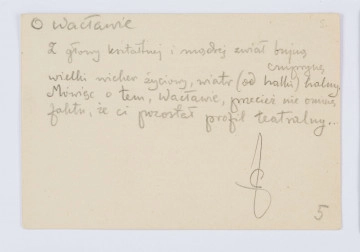 O Wacławie
Z głowy kształtnej i mądrej zwiał bujną
czuprynę
wielki wicher życiowy, wiatr (od halki) halny.
Mówiąc o tem, Wacławie, przecież nie ominę
faktu, że ci pozostał profil teatralny...
5